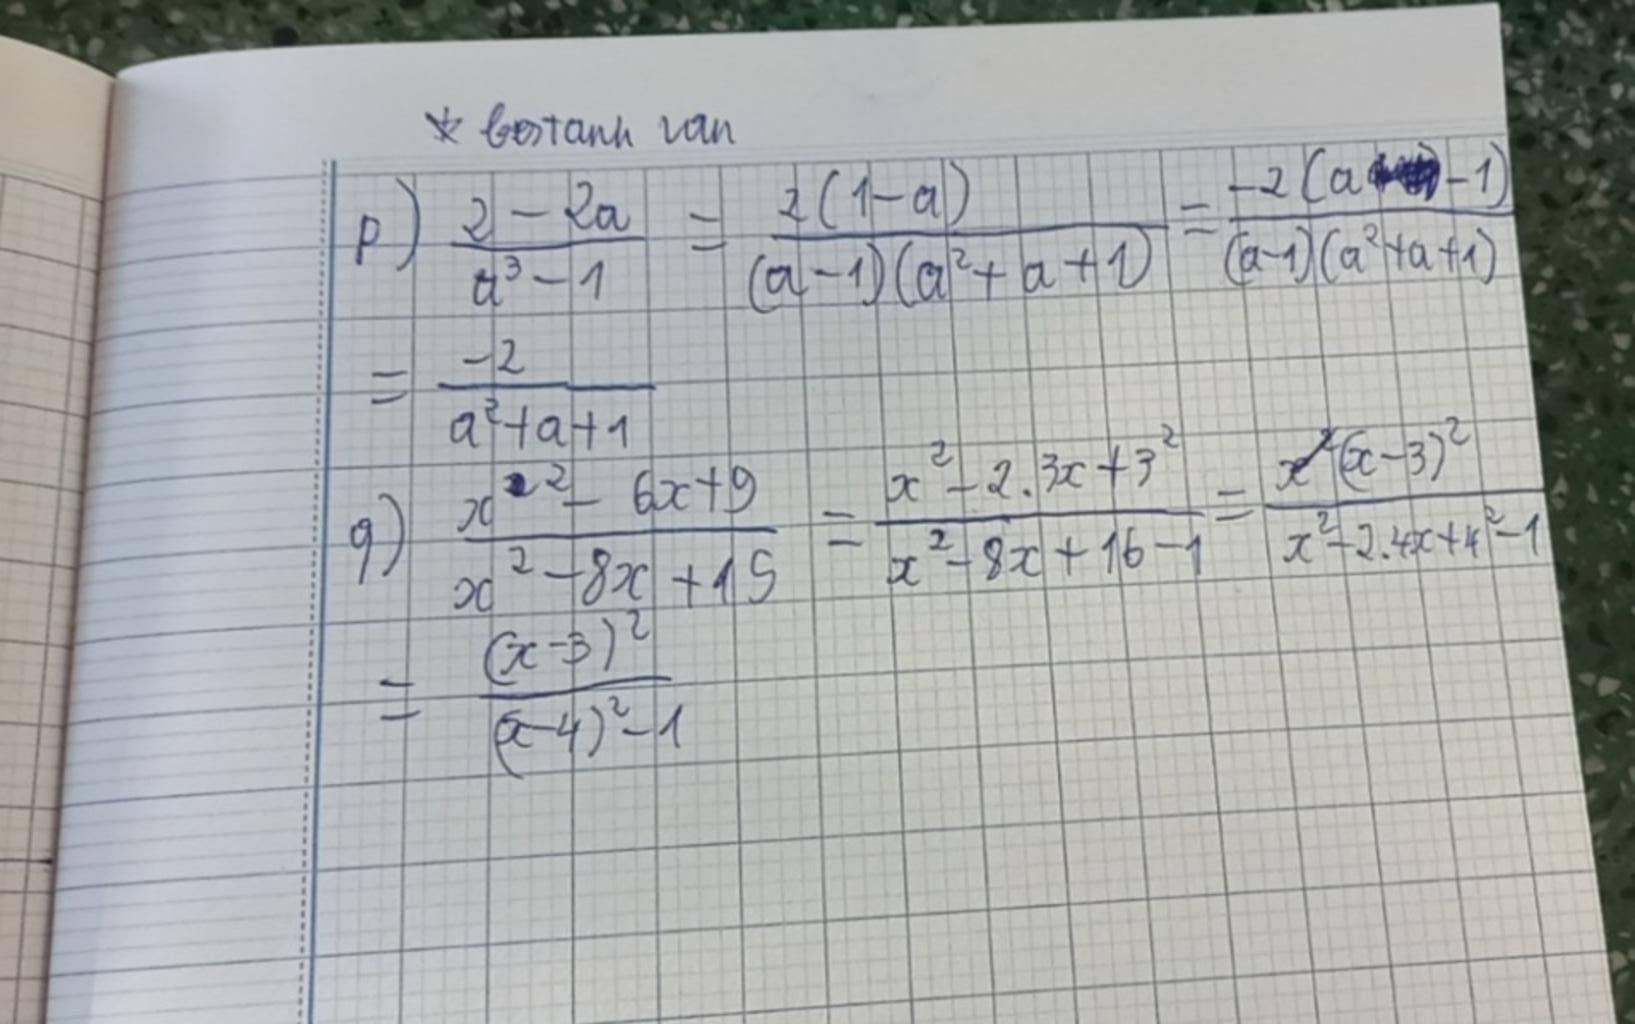 p) \frac{2 - 2a}{a^3 - 1} = \frac{2(1-a)}{(a-1)(a^2+a+1)} = \frac{-2(a-1)}{(a-1)(a^2+a+1)}
= \frac{-2}{a^2+a+1}
q) \frac{x^2 - 6x+9}{x^2-8x+15} = \frac{x^2-2.3x+3^2}{x^2-8x+16-1} = \frac{(x-3)^2}{x^2-2.4x+4^2-1}
= \frac{(x-3)^2}{(x-4)^2-1}